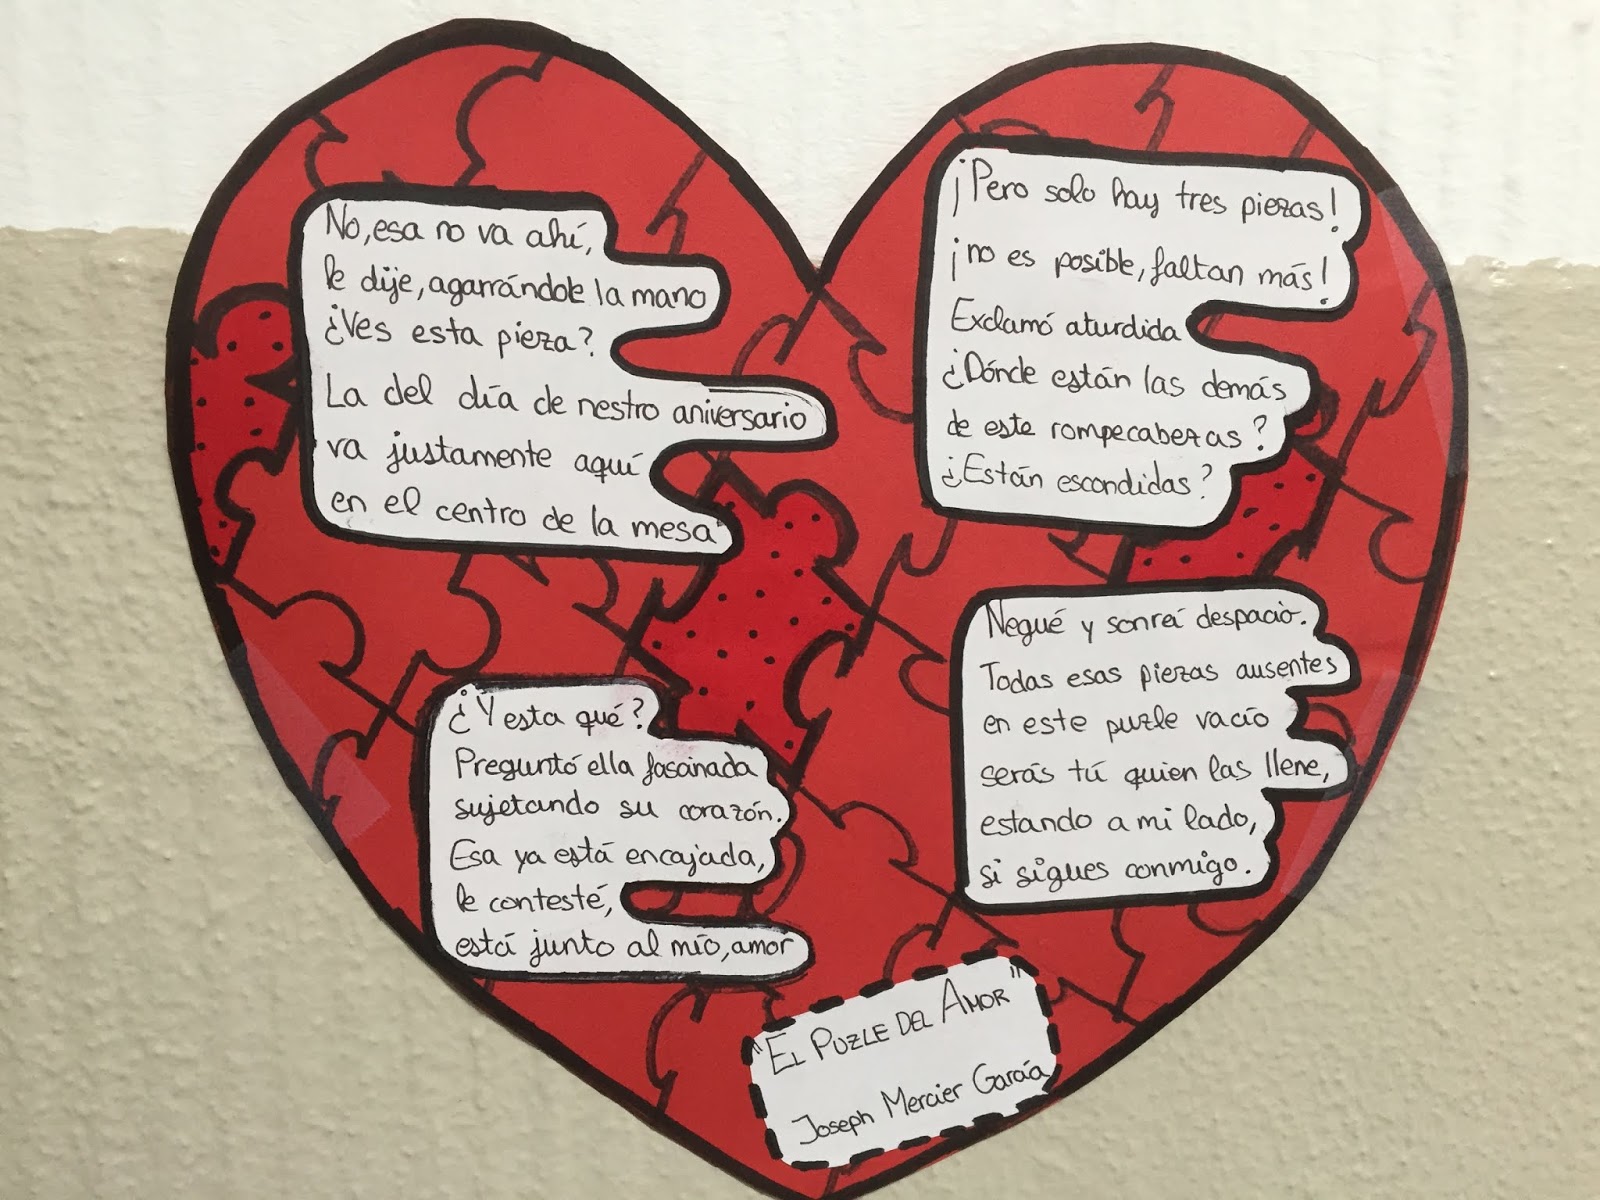 No, esa no va ahí,
le dije, agarrándole la mano
¿Ves esta pieza?
La del día de nestro aniversario
va justamente aquí
en el centro de la mesa
¿Y esta qué?
Preguntó ella fascinada
sujetando su corazón.
Esa ya está encajada,
le contesté,
está junto al mío, amor
¡Pero solo hay tres piezas!
¡no es posible, faltan más!
Exclamó aturdida
¿Dónde están las demás
de este rompecabezas?
¿Están escondidas?
Negué y sonreí despacio.
Todas esas piezas ausentes
en este puzle vacío
serás tú quien las llene,
estando a mi lado,
si sigues conmigo.
"El Puzle del Amor"
Joseph Mercier García